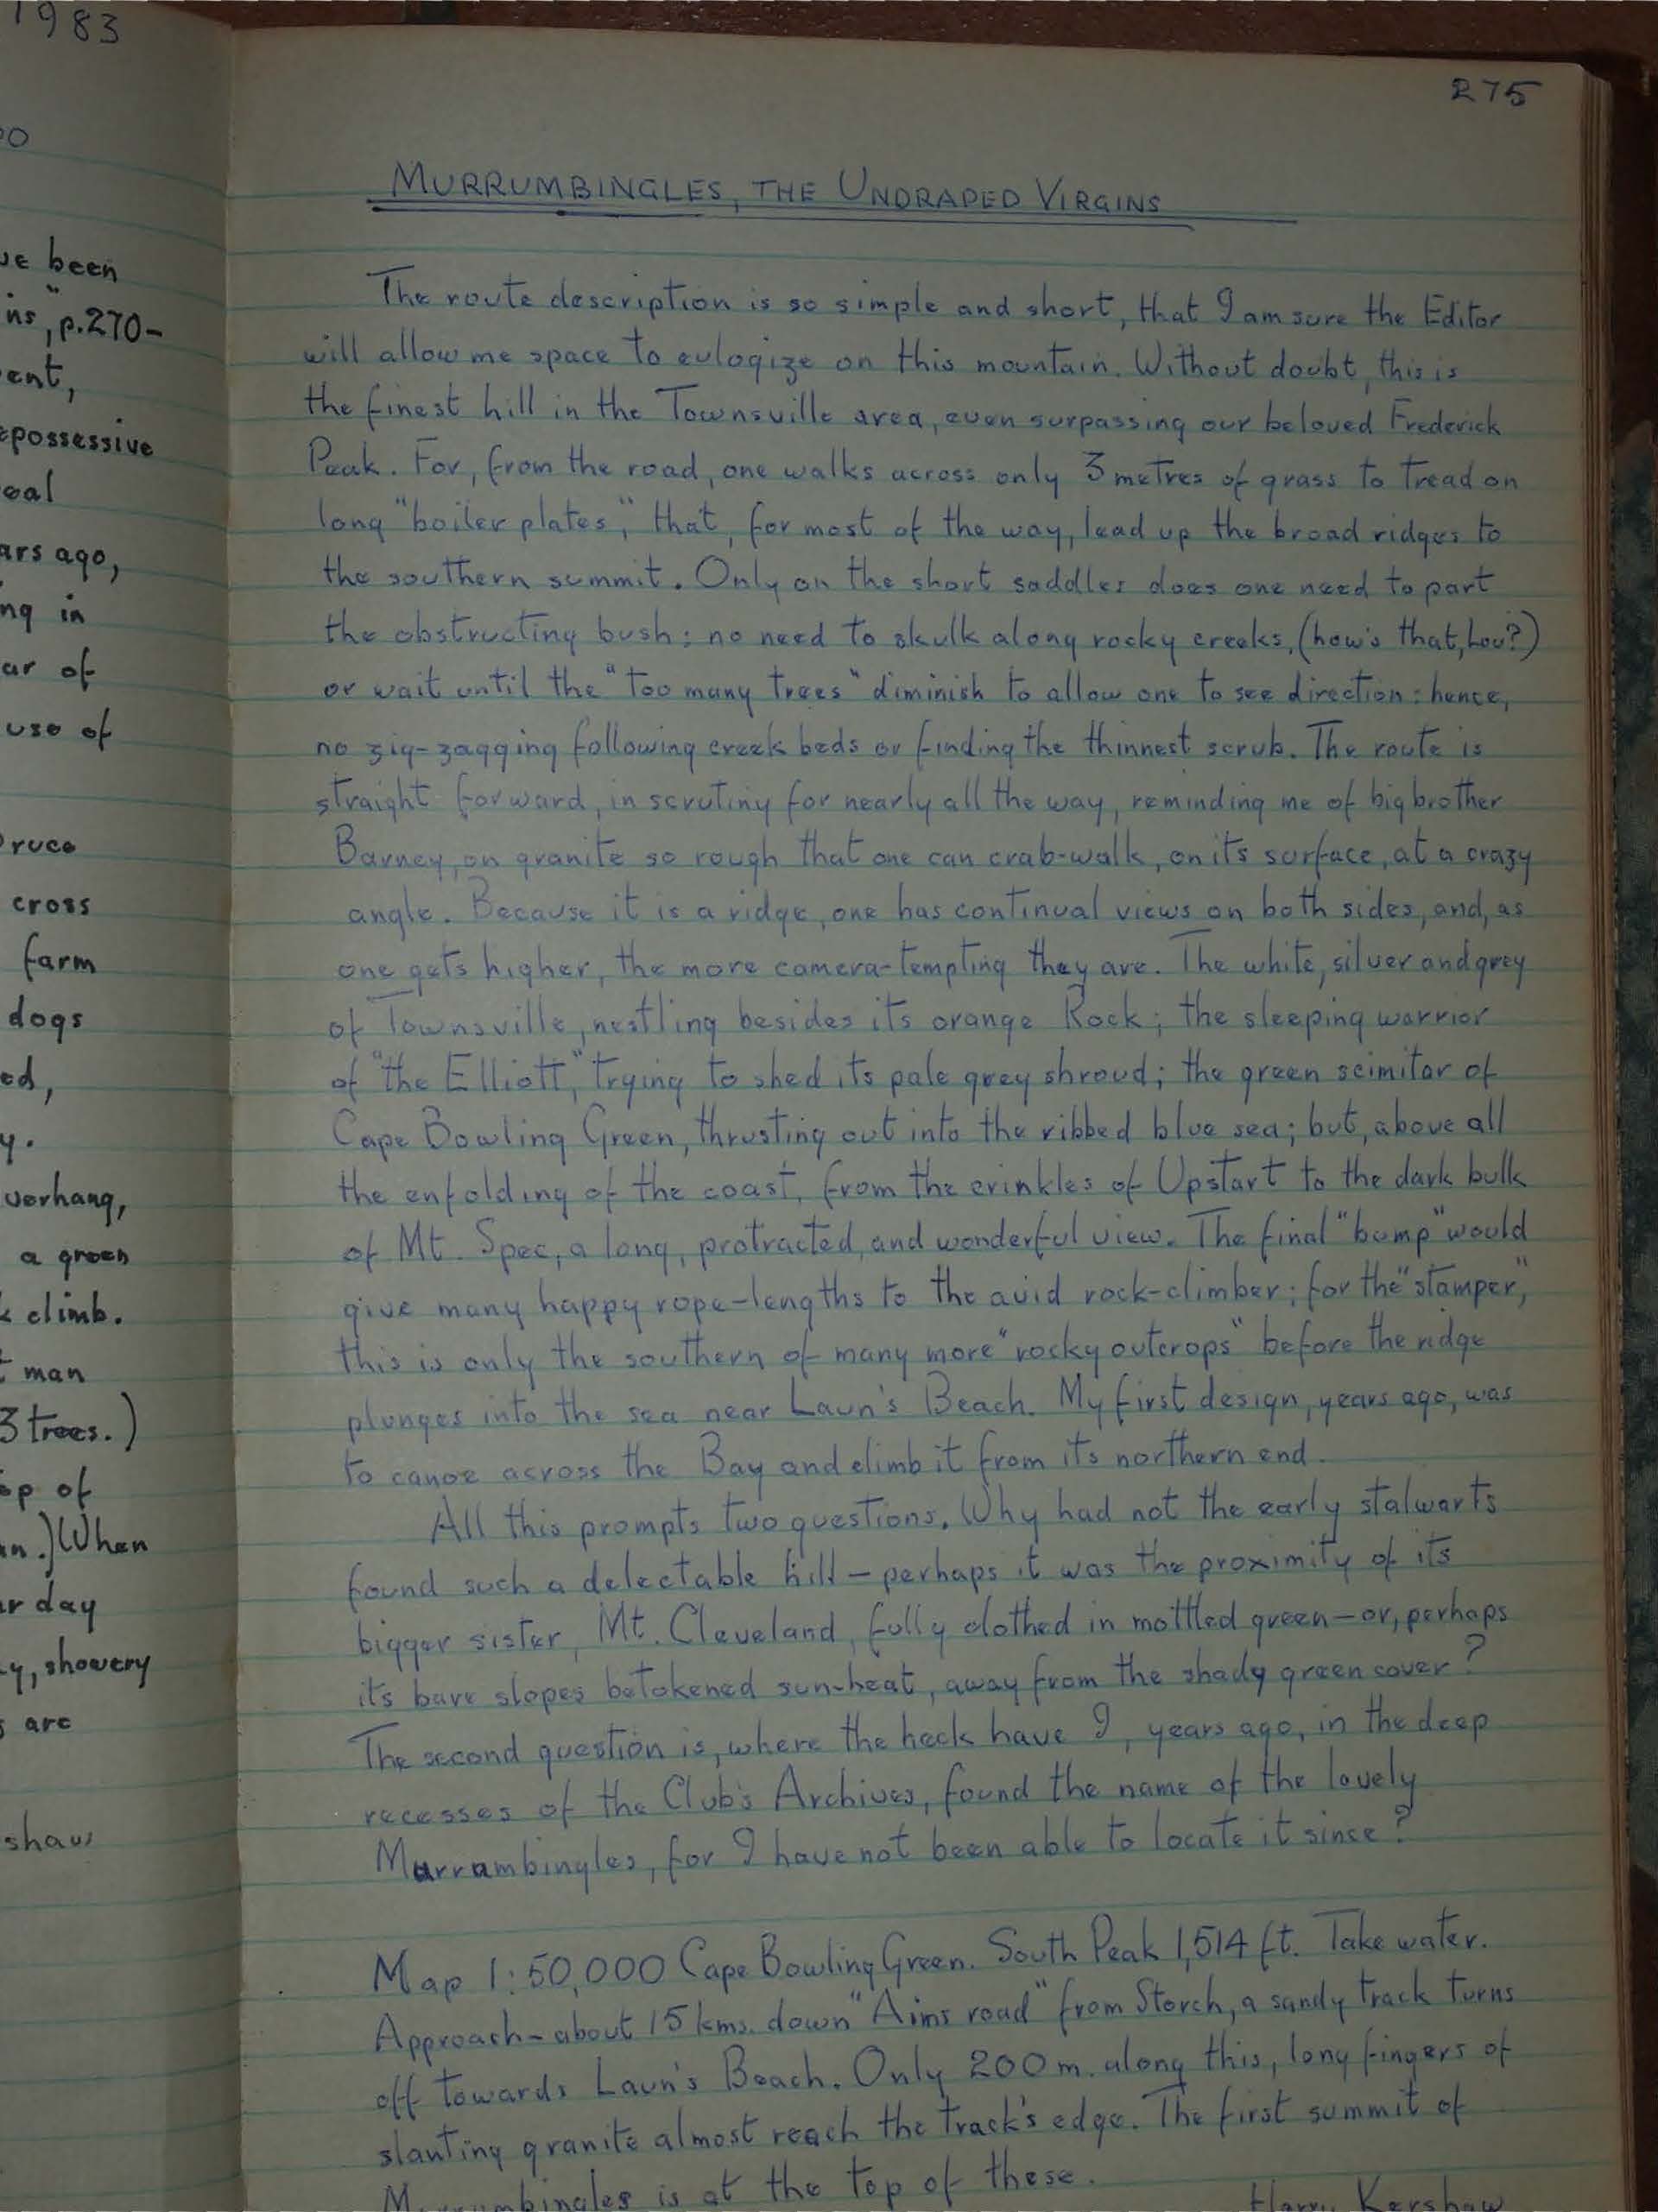 1983
ve been
ins", p.270-
ent,
possessive
eal
ars ago,
ng in
ar of
use of
ruce
cross
farm
dogs
ed,
y.
verhang,
a green
climb.
man
3 trees.)
op of
an.) When
ar day
y, showery
s are
shaw
275
MURRUMBINGLES, THE UNDRAPED VIRGINS
The route description is so simple and short, that I am sure the Editor
will allow me space to eulogize on this mountain. Without doubt, this is
the finest hill in the Townsville area, even surpassing our beloved Frederick
Peak. For, from the road, one walks across only 3 metres of grass to tread on
long "boiler plates," that, for most of the way, lead up the broad ridges to
the southern summit. Only on the short saddles does one need to part
the obstructing bush: no need to skulk along rocky creeks, (how's that, Lou?)
or wait until the "too many trees" diminish to allow one to see direction: hence,
no zig-zagging following creek beds or finding the thinnest scrub. The route is
straight forward, in scrutiny for nearly all the way, reminding me of big brother
Barney, on granite so rough that one can crab-walk, on its surface, at a crazy
angle. Because it is a ridge, one has continual views on both sides, and, as
one gets higher, the more camera-tempting they are. The white, silver and grey
of Townsville, nestling besides its orange Rock; the sleeping warrior
of "the Elliott," trying to shed its pale grey shroud; the green scimitar of
Cape Bowling Green, thrusting out into the ribbed blue sea; but, above all
the enfolding of the coast, from the crinkles of Upstart to the dark bulk
of Mt. Spec, a long, protracted, and wonderful view. The final "bump" would
give many happy rope-lengths to the avid rock-climber; for the "stamper,"
this is only the southern of many more "rocky outcrops" before the ridge
plunges into the sea near Laun's Beach. My first design, years ago, was
to canoe across the Bay and climb it from its northern end.
All this prompts two questions. Why had not the early stalwarts
found such a delectable hill - perhaps it was the proximity of its
bigger sister, Mt. Cleveland, fully clothed in mottled green - or, perhaps
its bare slopes betokened sun-heat, away from the shady green cover?
The second question is, where the heck have I, years ago, in the deep
recesses of the Club's Archives, found the name of the lovely
Murrumbingles, for I have not been able to locate it since?
Map 1:50,000 Cape Bowling Green. South Peak 1,514 ft. Take water.
Approach - about 15 kms. down "Aims road" from Storch, a sandy track turns
off towards Laun's Beach. Only 200 m. along this, long fingers of
slanting granite almost reach the track's edge. The first summit of
Murrumbingles is at the top of these.
Harry Kershaw